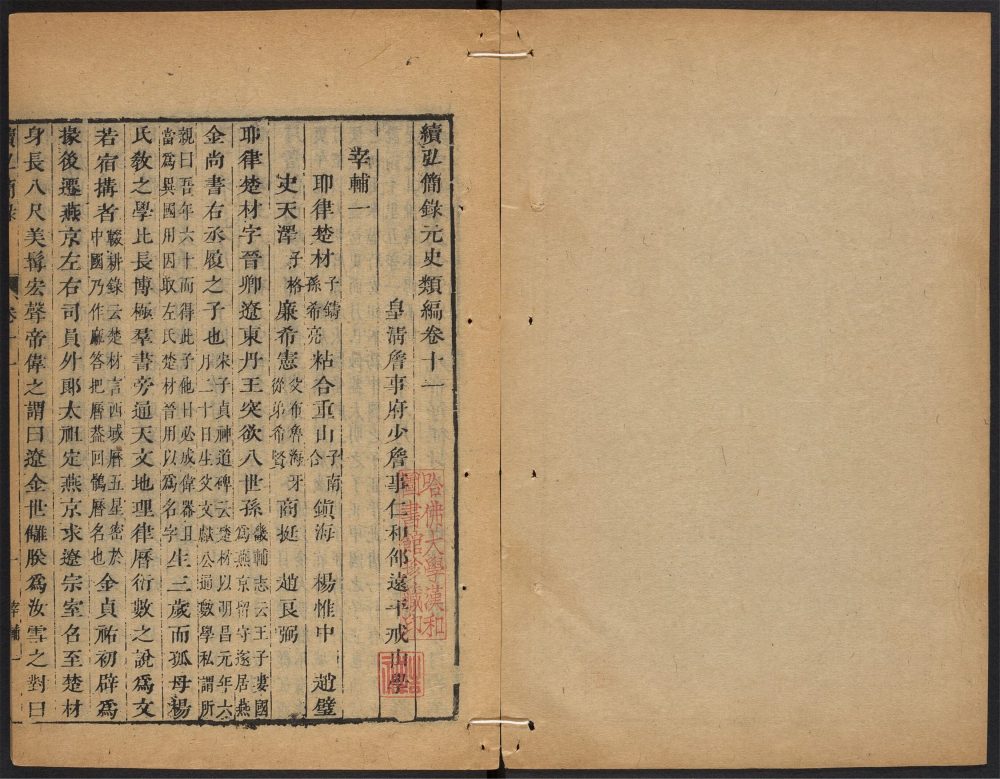 續弘簡錄元史類編卷十一
皇清詹事府少詹事仁和邵遠平戒山學
宰輔一
耶律楚材 子鑄 孫希亮 粘合重山 子南合 鎮海 楊惟中 趙璧
史天澤 子格 廉希憲 父布魯海牙 從弟希賢 商挺 趙良弼
耶律楚材字晉卿遼東丹王突欲八世孫 畿輔志云王子婁國爲燕京留守遂居燕
金尚書右丞履之子也 宋子貞神道碑云楚材以明昌元年六月二十日生父文獻公通數學私謂所
親曰吾年六十而得此子他日必成偉器且當爲異國用因取左氏楚材晉用以爲名字 生三歲而孤母楊
氏教之學比長博極羣書旁通天文地理律曆衍數之說爲文
若宿搆者 輟耕錄云楚材言西域曆五星密於中國乃作麻答把曆葢回鶻曆名也 金貞祐初辟爲
掾後遷燕京左右司員外郎太祖定燕京求遼宗室名至楚材
身長八尺美髯宏聲帝偉之謂曰遼金世讎朕爲汝雪之對曰
續弘簡錄 卷十一 宰輔一 一
哈佛大學漢和圖書館珍藏印